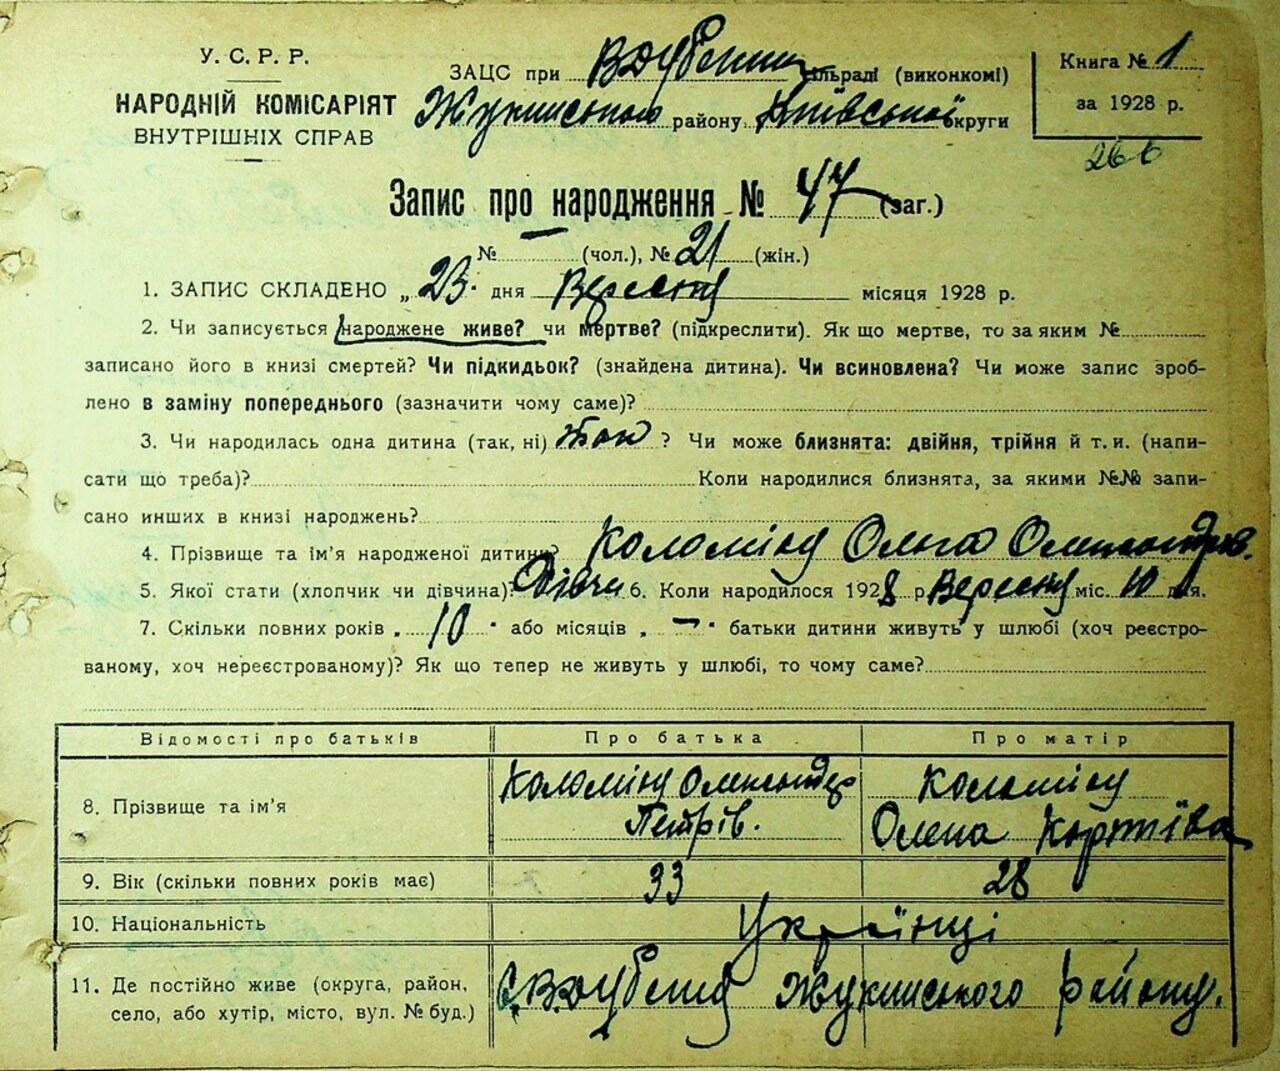 У. С. Р. Р.
НАРОДНІЙ КОМІСАРІЯТ
ВНУТРІШНІХ СПРАВ
ЗАЦС при В Дубечні сільраді (виконкомі)
Жукинського району Київської округи
Книга № 1
за 1928 р.
266
Запис про народження № 47 (заг.)
№ (чол.), № 21 (жін.)
1. ЗАПИС СКЛАДЕНО „ 23 " дня Вересня місяця 1928 р.
2. Чи записується народжене живе? чи мертве? (підкреслити). Як що мертве, то за яким №
записано його в книзі смертей? Чи підкидьок? (знайдена дитина). Чи всиновлена? Чи може запис зроб-
лено в заміну попереднього (зазначити чому саме)?
3. Чи народилась одна дитина (так, ні) так ? Чи може близнята: двійня, трійня й т. и. (напи-
сати що треба)? Коли народилися близнята, за якими №№ запи-
сано инших в книзі народжень?
4. Прізвище та ім’я народженої дитини? Коломієц Ольга Олександрів.
5. Якої стати (хлопчик чи дівчина)? Дівчи 6. Коли народилося 1928 р. Вересня міс. 10 дня.
7. Скільки повних років „ 10 " або місяців „ — " батьки дитини живуть у шлюбі (хоч реєстро-
ваному, хоч нереєстрованому)? Як що тепер не живуть у шлюбі, то чому саме?
Відомості про батьків Про батька Про матір
8. Прізвище та ім’я Коломієц Олександр Петрів. Коломієц Олена
9. Вік (скільки повних років має) 33 28
10. Національність Українці
11. Де постійно живе (округа, район,
село, або хутір, місто, вул. № буд.) с. В Дубечня Жукинського району.